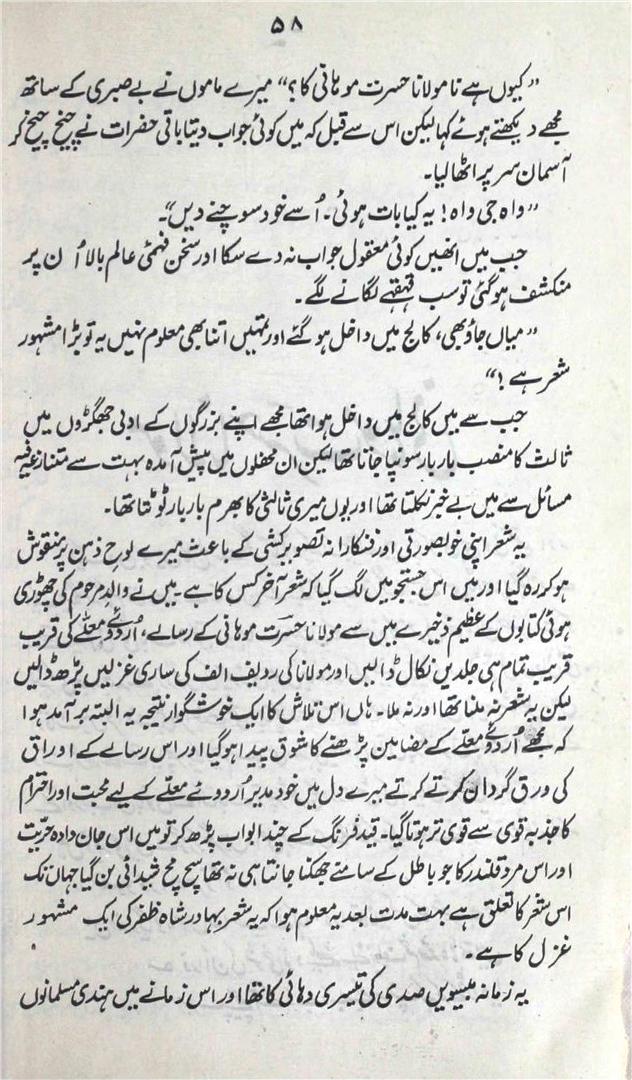 ۵۸
”کیوں ہے نا مولانا حسرت موہانی کا؟“ میرے ماموں نے بے صبری کے ساتھ
مجھے دیکھتے ہوئے کہا لیکن اس سے قبل کہ میں کوئی جواب دیتا باقی حضرات نے چیخ چیخ کر
آسمان سر پر اٹھا لیا۔
”واہ جی واہ! یہ کیا بات ہوئی۔ اُسے خود سوچنے دیں“۔
جب میں انھیں کوئی معقول جواب نہ دے سکا اور سخن فہمئ عالم بالا اُن پر
منکشف ہو گئی تو سب قہقہے لگانے لگے۔
”میاں جاؤ بھی، کالج میں داخل ہو گئے اور تمہیں اتنا بھی معلوم نہیں یہ تو بڑا مشہور
شعر ہے!“
جب سے میں کالج میں داخل ہوا تھا مجھے اپنے بزرگوں کے ادبی جھگڑوں میں
ثالث کا منصب بار بار سونپا جاتا تھا لیکن ان محفلوں میں پیش آمدہ بہت سے متنازعہ فیہ
مسائل سے میں بے خبر نکلتا تھا اور یوں میری ثالثی کا بھرم بار بار ٹوٹتا تھا۔
یہ شعر اپنی خوبصورتی اور فنکارانہ تصویر کشی کے باعث میرے لوح ذہن پر منقوش
ہو کر رہ گیا اور میں اس جستجو میں لگ گیا کہ شعر آخر کس کا ہے۔ میں نے والد مرحوم کی چھوڑی
ہوئی کتابوں کے عظیم ذخیرے میں سے مولانا حسرت موہانی کے رسالے، اُردوئے معلے کی قریب
قریب تمام ہی جلدیں نکال ڈالیں اور مولانا کی ردیف الف کی ساری غزلیں پڑھ ڈالیں
لیکن یہ شعر نہ ملنا تھا اور نہ ملا۔ ہاں اس تلاش کا ایک خوشگوار نتیجہ یہ البتہ برآمد ہوا
کہ مجھے اُردوئے معلے کے مضامین پڑھنے کا شوق پیدا ہو گیا اور اس رسالے کے اوراق
کی ورق گردانی کرتے کرتے میرے دل میں خود مدیر اُردوئے معلے کے لیے محبت اور احترام
کا جذبہ قوی سے قوی تر ہوتا گیا۔ قید فرنگ کے چند ابواب پڑھ کر تو میں اس جان دادہ حریت
اور اس مرد قلندر کا جو باطل کے سامنے جھکنا جانتا ہی نہ تھا سچ مچ شیدائی بن گیا جہاں تک
اس شعر کا تعلق ہے بہت مدت بعد یہ معلوم ہوا کہ یہ شعر بہادر شاہ ظفر کی ایک مشہور
غزل کا ہے۔
یہ زمانہ بیسویں صدی کی تیسری دہائی کا تھا اور اس زمانے میں ہندی مسلمانوں